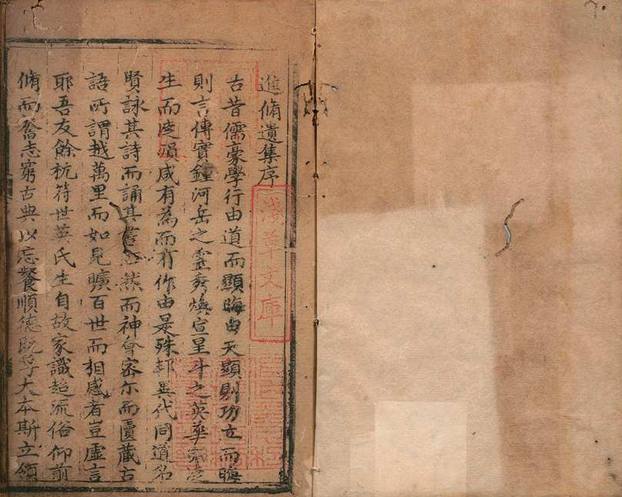 進脩遺集序
古昔儒豪學行由道而顯晦由天顯則功立而晦
則言傳實鍾河岳之靈秀煥宣星斗之英華
生而隕咸有為而有作由是殊邦異代同道名
賢詠其詩而誦其書然而神會密尓而藏古
語所謂越萬里而如見曠百世而相感者豈虛言
耶吾友餘杭符世英氏生自故家識超流俗仰前
脩而奮志窮古典以忘餐順德既孚大本斯立領
淺草文庫